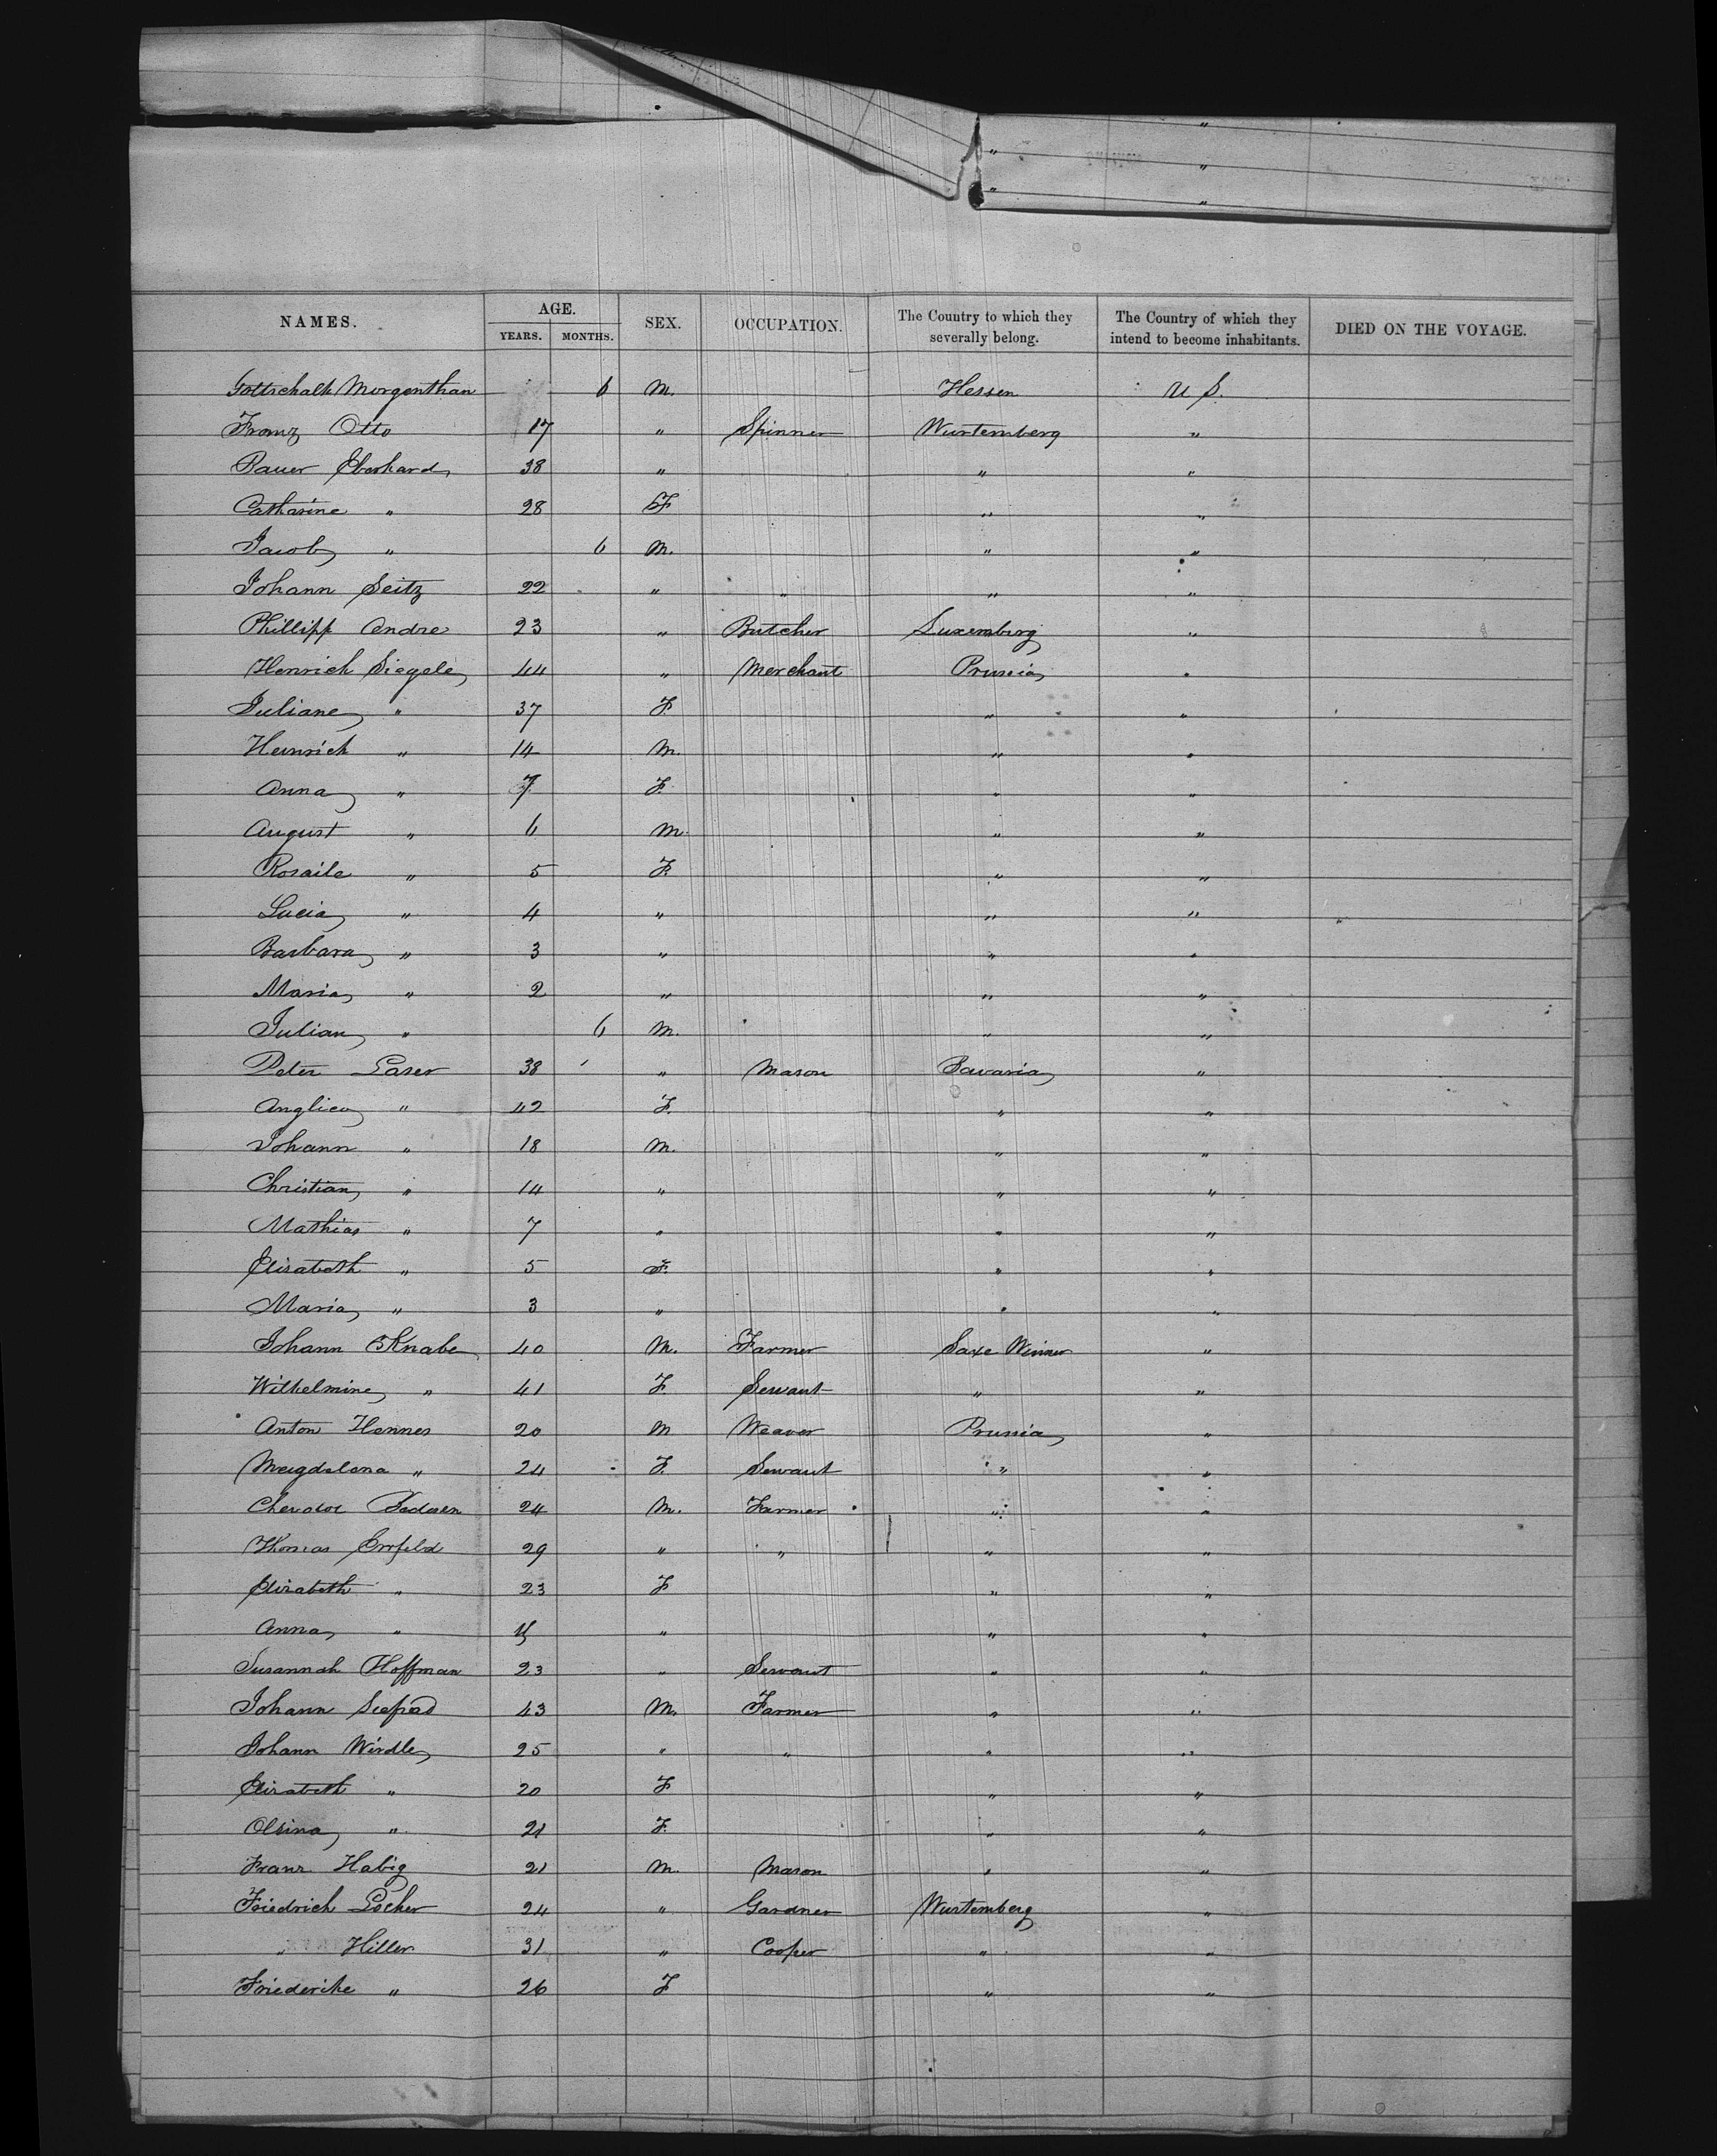 NAMES. AGE. SEX. OCCUPATION. The Country to which they severally belong. The Country of which they intend to become inhabitants. DIED ON THE VOYAGE.
YEARS. MONTHS.
Gottschalk Morgenthau 6 M. Hessen U S.
Franz Otto 17 " Spinner Wurtemberg "
Bauer Eberhard 38 " " "
Catharine " 28 F " "
Jacob " 6 M. " "
Johann Seitz 22 " " " "
Phillipp Andre 23 " Butcher Luxemburg "
Henrich Siegele 44 " Merchant Prussia "
Juliane " 37 F. " "
Heinrich " 14 M. " "
Anna " 7 F. " "
August " 6 M. " "
Rosaile " 5 F. " "
Lucia " 4 " " "
Barbara " 3 " " "
Maria " 2 " " "
Julian " 6 M. " "
Peter Laser 38 " Mason Bavaria "
Anglica " 42 F. " "
Johann " 18 M. " "
Christian " 14 " " "
Mathias " 7 " " "
Elisabeth " 5 F. " "
Maria " 3 " " "
Johann Knabe 40 M. Farmer Saxe Weimer "
Wilhelmine " 41 F. Servant " "
Anton Hennes 20 M Weaver Prussia "
Magdalena " 24 F. Servant " "
24 M. Farmer " "
Thomas 29 " " " "
Elizabeth " 23 F " "
Anna " " " "
Susannah Hoffman 23 " Servant " "
Johann 43 M. Farmer " "
Johann Wirdle 25 " " " "
Elizabeth " 20 F " "
" 21 F. " "
Franz Habig 21 M. Mason " "
Friedrich Locher 24 " Gardner Wurtemberg "
" Hiller 31 " Cooper " "
Friederike " 26 F " "